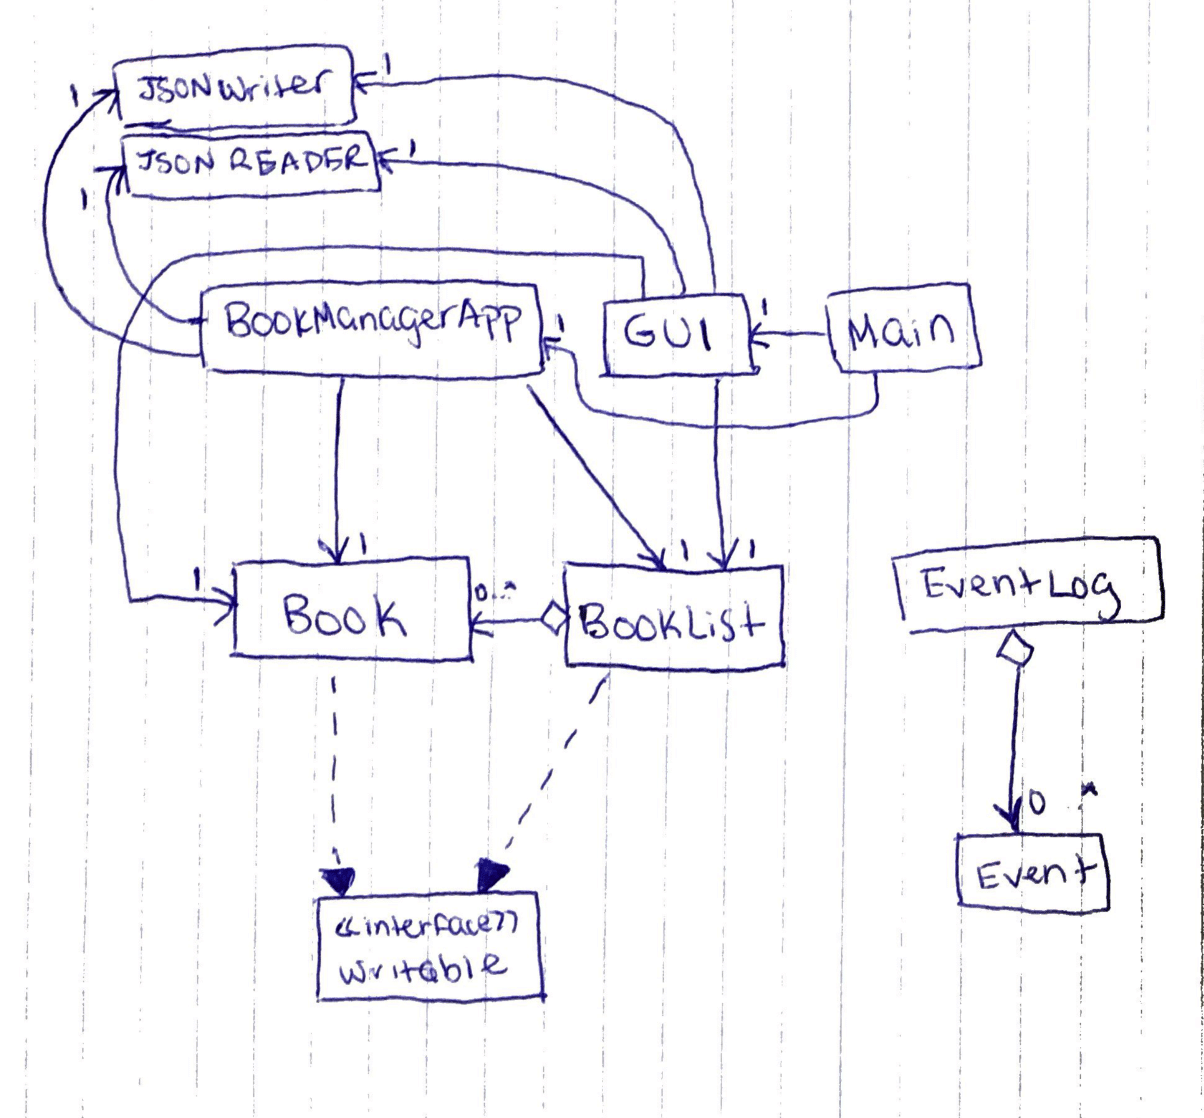 1 JSONWriter 1
JSON READER 1
1
BookManagerApp 1 GUI 1 Main
1 1 1
1 Book 0..* BookList
EventLog
0..*
Event
<<interface>>
writable